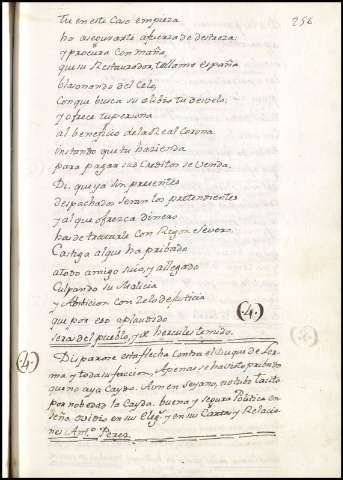 256
tu en este caso empieza
ha asegurarte a fuerza de destreza
y procura con maña,
que su Restaurador, te llame españa
blasonando del Celo,
con que busca su alibio tu desvelo,
y ofrece tu persona
al beneficio de la Real Corona
instando que tu hazienda
para pagar sus Creditos se venda.
Di, que ya sin presentes
despachados seran los pretendientes
y al que ofrezca dinero
has de tratarle con Rigor severo.
Castiga al que ha pribado
a todo amigo suio, y allegado
Culpando su Malicia
y Ambicion con zelo de justicia
que por eso aplaudido
seras del pueblo, y de hercules temido.
(4.)
(4.) Disparose esta flecha contra el Duque de Ler-
ma y toda su faccion, Apenas se ha visto pribado
que no aya Caydo. Aun en Seyano, noto lo tacito
por noberdad la Cayda. buena y segura Politica en-
seña ovidio en sus Eleg.s y en sus Cartas y Relacio-
nes Ant.o Perez.